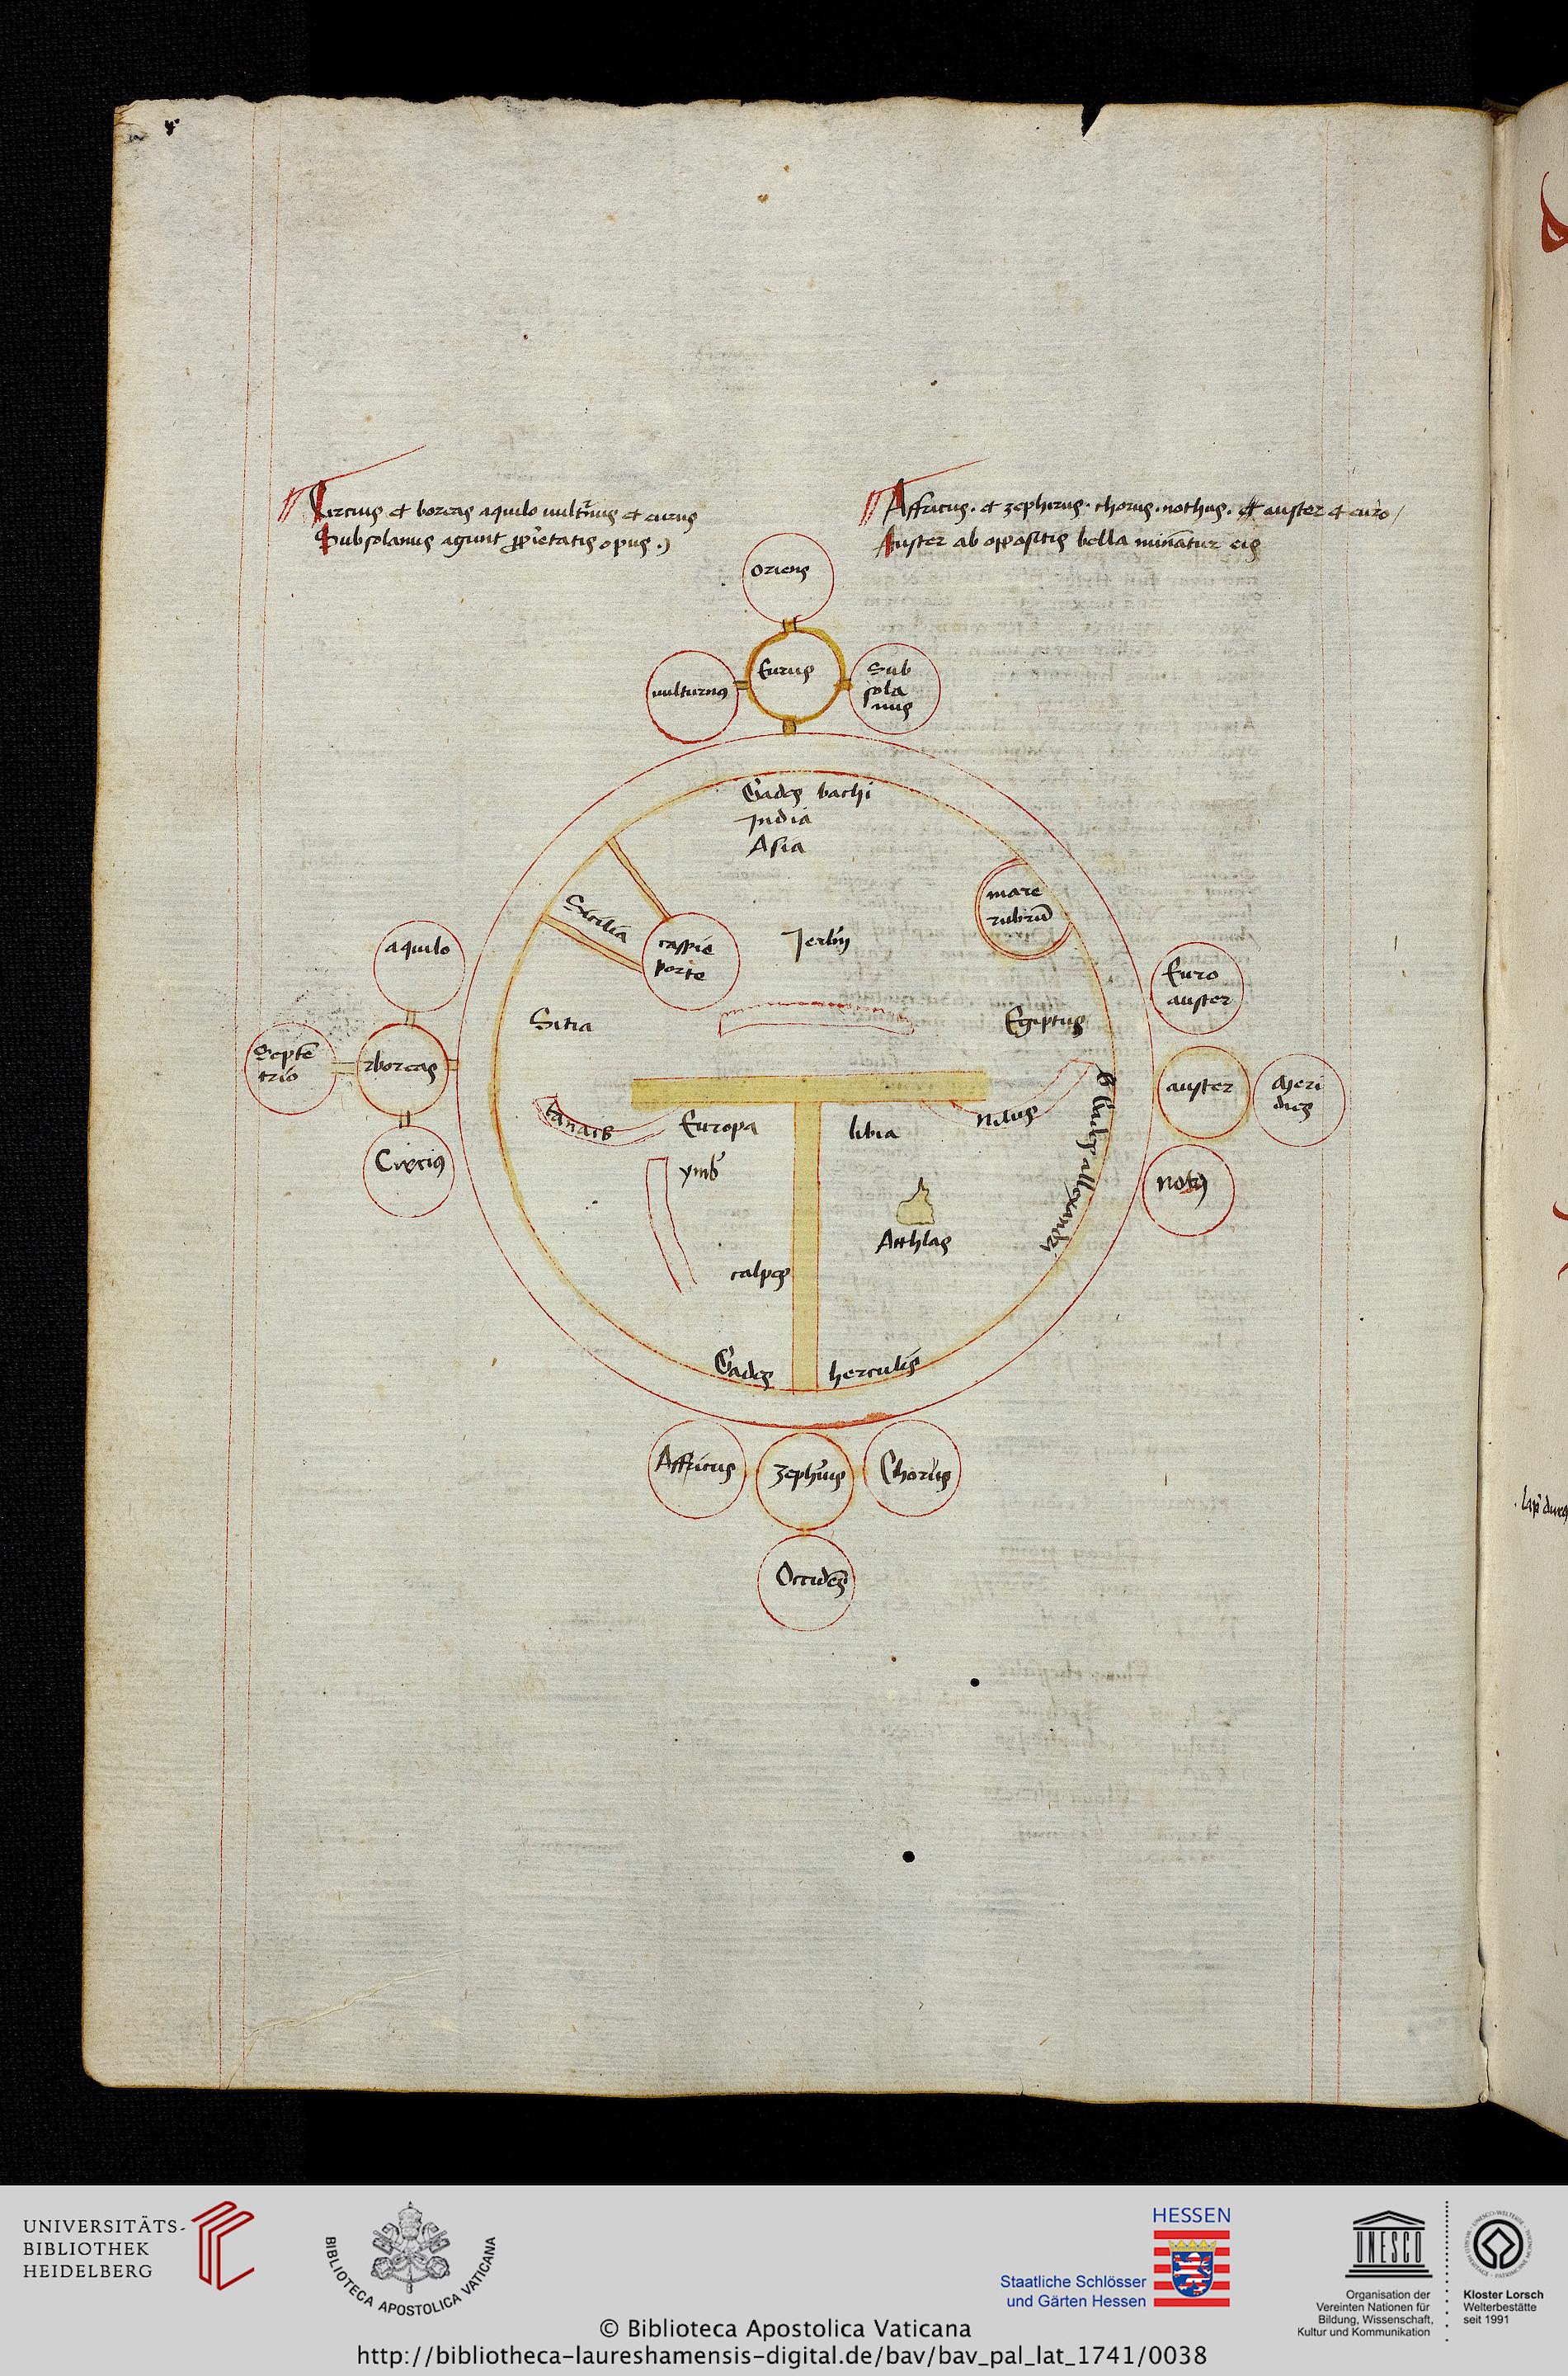 Circius et boreas aquilo vult'nus et eurus
Subsolanus agunt ꝓp'ietatis opus .)
Affricus. et zephirus. chorus. nothus. et auster et euro /
Auster ab oppositis bella minātur eis
Oriens
Eurus
vulturnꝰ
Sub
sola
nus
Gades bachi
India
Asia
mare
rubrū
Sicilia
caspie
porte
Jerl'm
Sitia
Egiptus
aquilo
Septē
trio
boreas
Circiꝰ
Euro
auster
auster
Meri
dies
Notꝰ
tanais
Europa
libia
nilus
Gades allexandri
Atthlas
calpes
Gades herculis
Affricus
Zeph'us
Chorus
Occidēs
UNIVERSITÄTS-
BIBLIOTHEK
HEIDELBERG
BIBLIOTECA APOSTOLICA VATICANA
HESSEN
Staatliche Schlösser
und Gärten Hessen
UNESCO
Organisation der
Vereinten Nationen für
Bildung, Wissenschaft,
Kultur und Kommunikation
Kloster Lorsch
Welterbestätte
seit 1991
© Biblioteca Apostolica Vaticana
http://bibliotheca-laureshamensis-digital.de/bav/bav_pal_lat_1741/0038